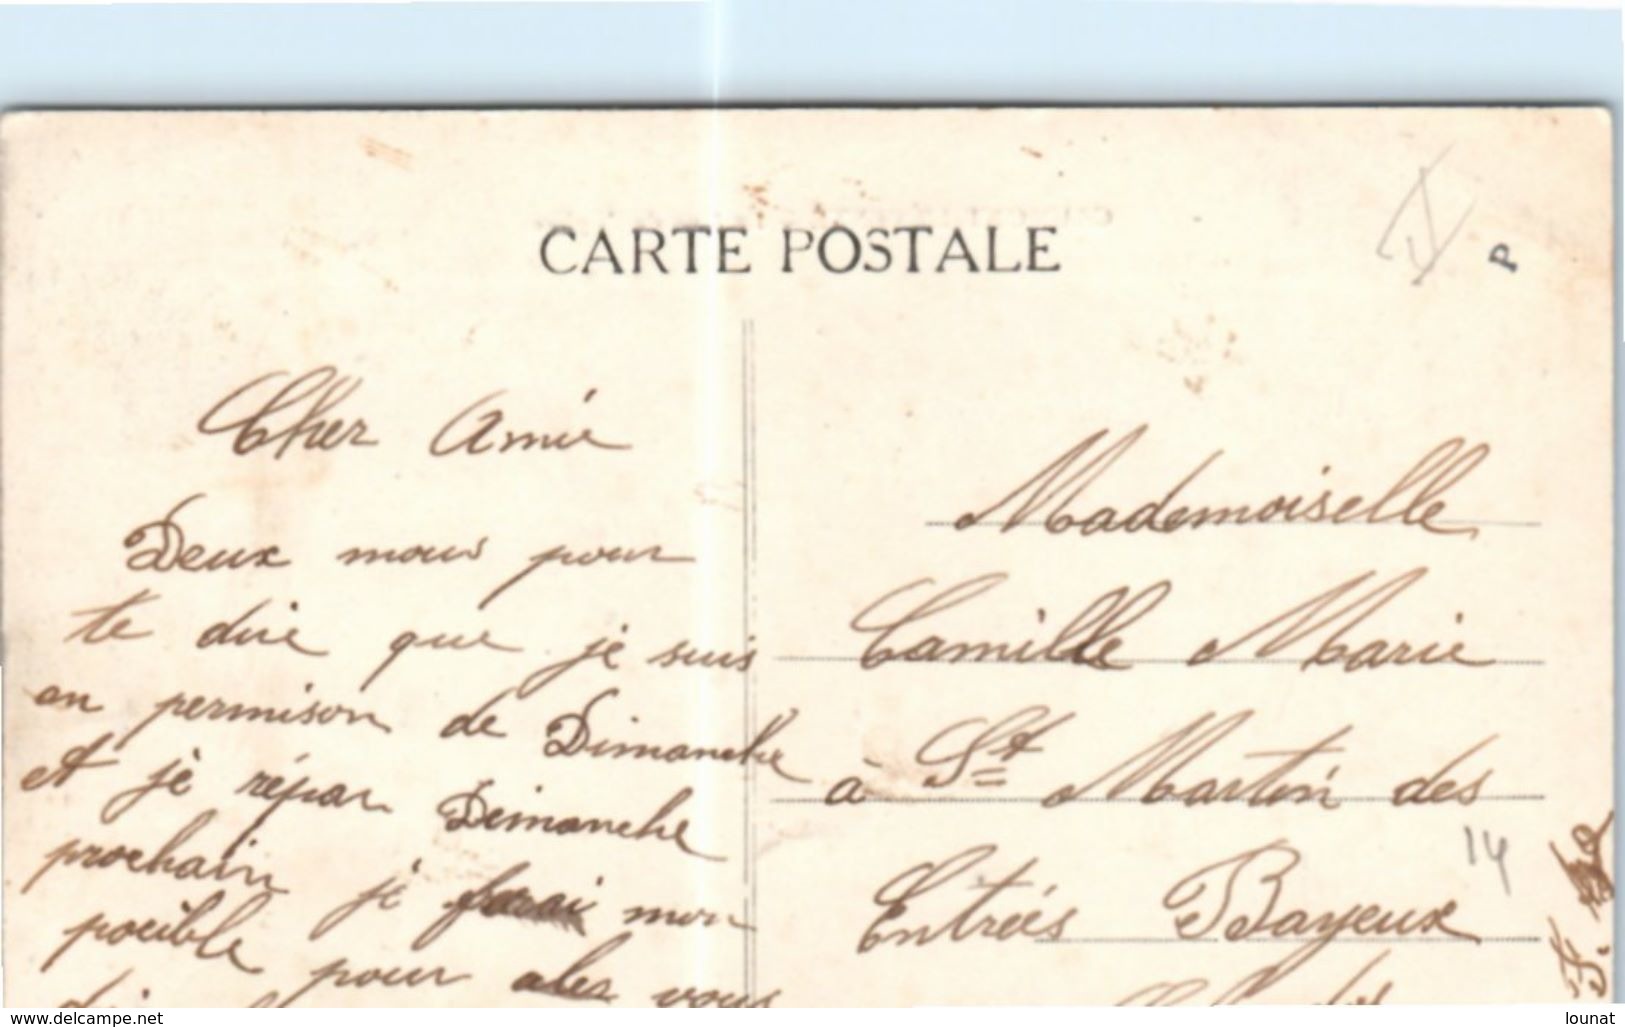 CARTE POSTALE
P
Cher Amie
Deux mous pour
te dire que je suis
en permison de Dimanche
et je répar Dimanche
prochain je ferai mon
posible pour alez vous
Mademoiselle
Camille Marie
à St Martin des
Entrées Bayeux
14
www.delcampe.net
lounat